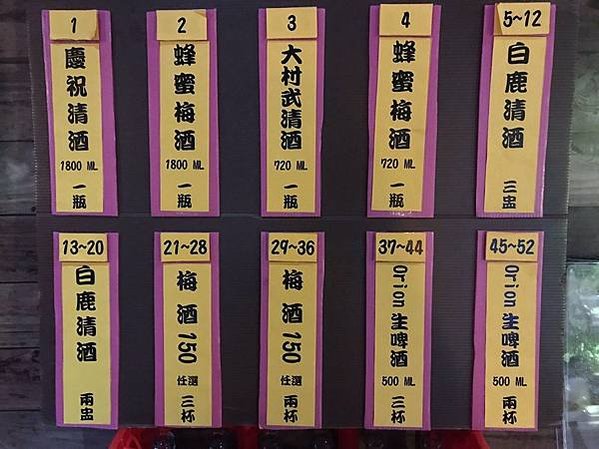 1
慶祝清酒
1800 ML
一瓶
2
蜂蜜梅酒
1800 ML
一瓶
3
大村武清酒
720 ML
一瓶
4
蜂蜜梅酒
720 ML
一瓶
5~12
白鹿清酒
三盅
13~20
白鹿清酒
兩盅
21~28
梅酒150
任選
三杯
29~36
梅酒150
任選
兩杯
37~44
Orion生啤酒
500 ML
三杯
45~52
Orion生啤酒
500 ML
兩杯